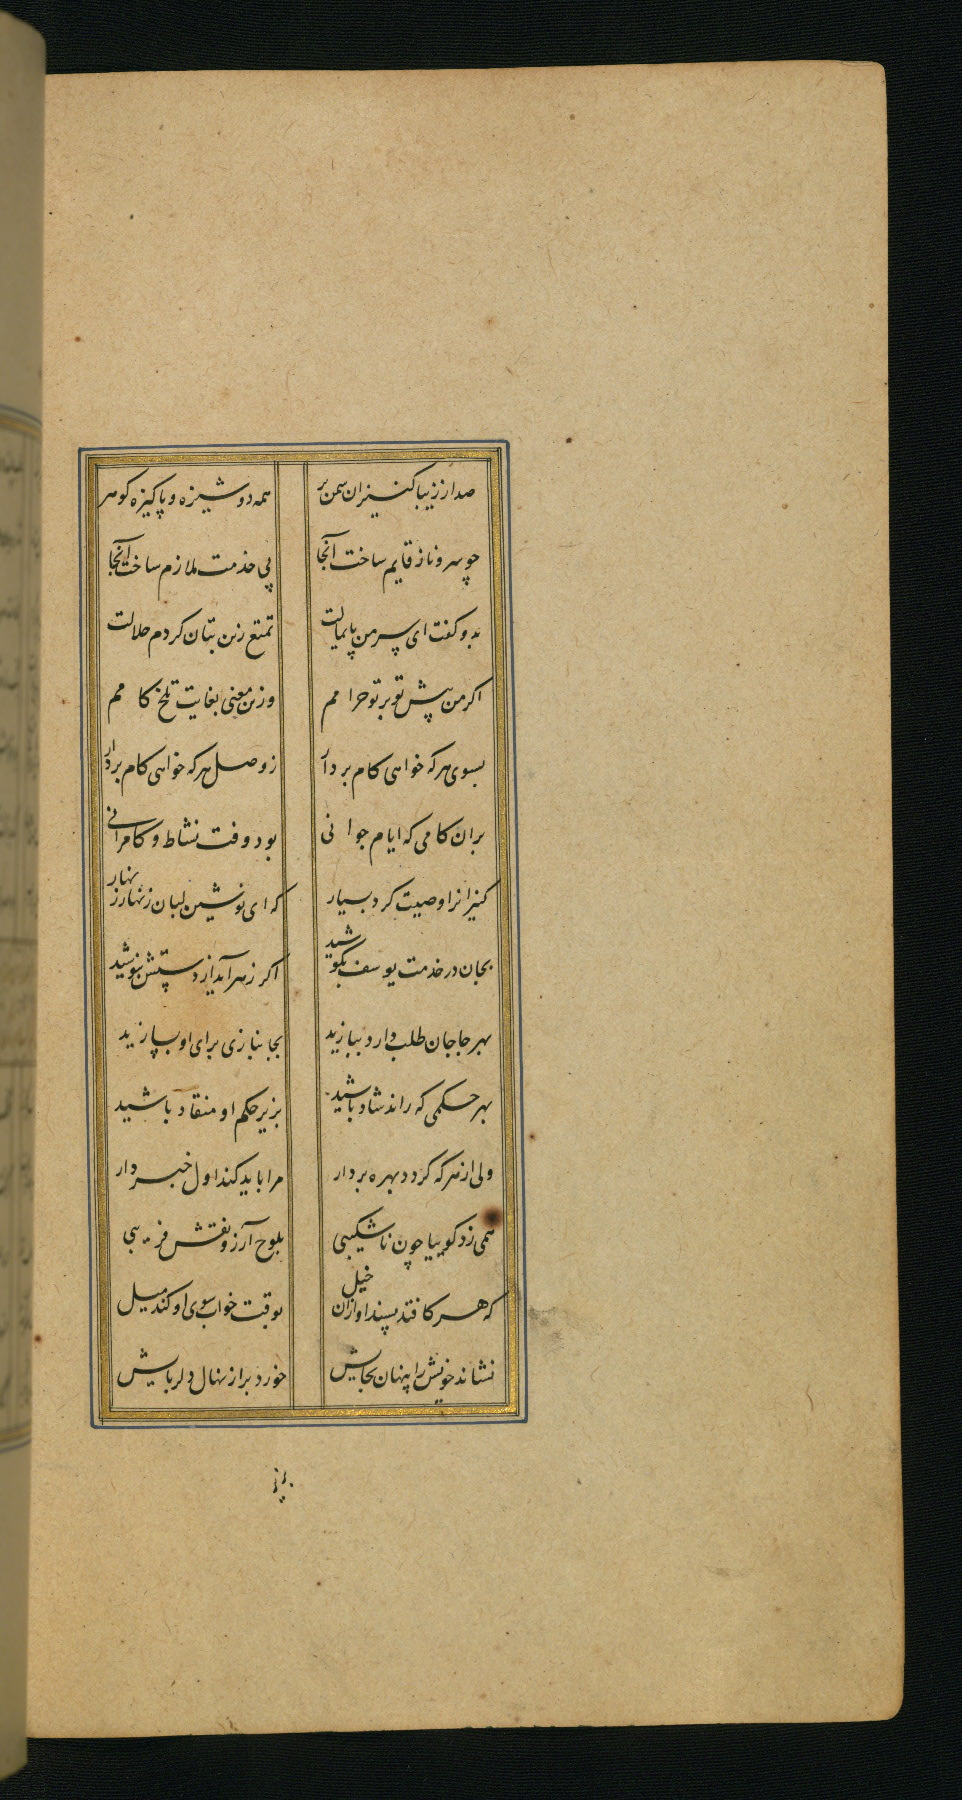 صد از زیبا کنیزان سمن بر همه دوشیزه و پاکیزه کوهر
چو سرو ناز قایم ساخت آنجا پی خدمت ملازم ساخت آنجا
بدو کفت ای سر من پایمالت تمتع زین بتان کردم حلالت
اکر من پیش تو بر تو حرامم وزین معنی بغایت تلخ کامم
بسوی هر که خواهی کام بردار ز وصل هر که خواهی کام بردار
بران کامی که ایام جوانی بود وقت نشاط و کامرانی
کنیزانرا وصیت کرد بسیار که ای نوشین لبان زنهار زنهار
بجان در خدمت یوسف بکوشید اکر زهر آید از دستش بنوشید
بهر جا جان طلب دارد ببازید بجا بنازی برای او بسازید
بهر حکمی که راند شاد باشید بزیر حکم او منقاد باشید
ولی از هر که کردد بهره بردار مرا باید کند اول خبردار
همی زد کوییا چون ناشکیبی بلوح آرزو نقش فریبی
که هر کافتد پسند او ازان خیل بوقت خواب سوی او کند میل
نشاند خویش را پنهان بجایش خورد بر از نهال دلربایش